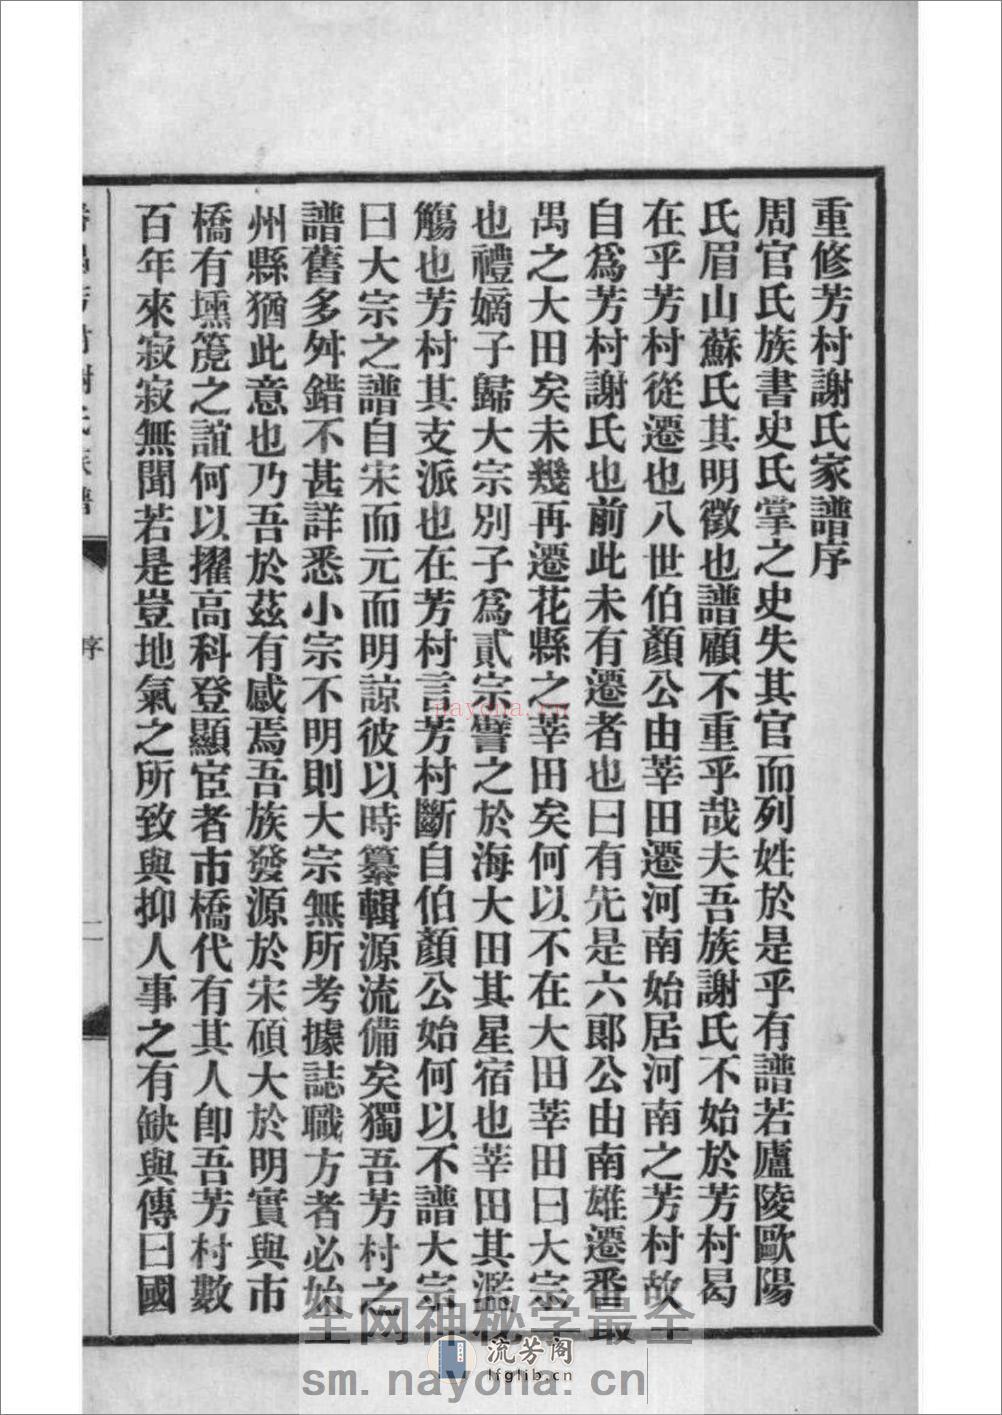 重修芳村謝氏家譜序
周官氏族書史氏掌之史失其官而列姓於是乎有譜若廬陵歐陽
氏眉山蘇氏其明徵也譜顧不重乎哉夫吾族謝氏不始於芳村曷
在乎芳村從遷也八世伯顏公由莘田遷河南始居河南之芳村故
自爲芳村謝氏也前此未有遷者也曰有先是六郞公由南雄遷番
禺之大田矣未幾再遷花縣之莘田矣何以不在大田莘田曰大宗
也禮嫡子歸大宗別子爲貳宗譬之於海大田其星宿也莘田其濫
觴也芳村其支派也在芳村言芳村斷自伯顏公始何以不譜大宗
曰大宗之譜自宋而元而明諒彼以時纂輯源流備矣獨吾芳村之
譜舊多舛錯不甚詳悉小宗不明則大宗無所考據誌職方者必始
州縣猶此意也乃吾於茲有感焉吾族發源於宋碩大於明實與市
橋有壎箎之誼何以擢高科登顯宦者市橋代有其人卽吾芳村數
百年來寂寂無聞若是豈地氣之所致與抑人事之有缺與傳曰國
謝氏族譜
序
nayona.cn
全网神秘学最全
流芳阁
lfglib.com
sm.nayona.cn